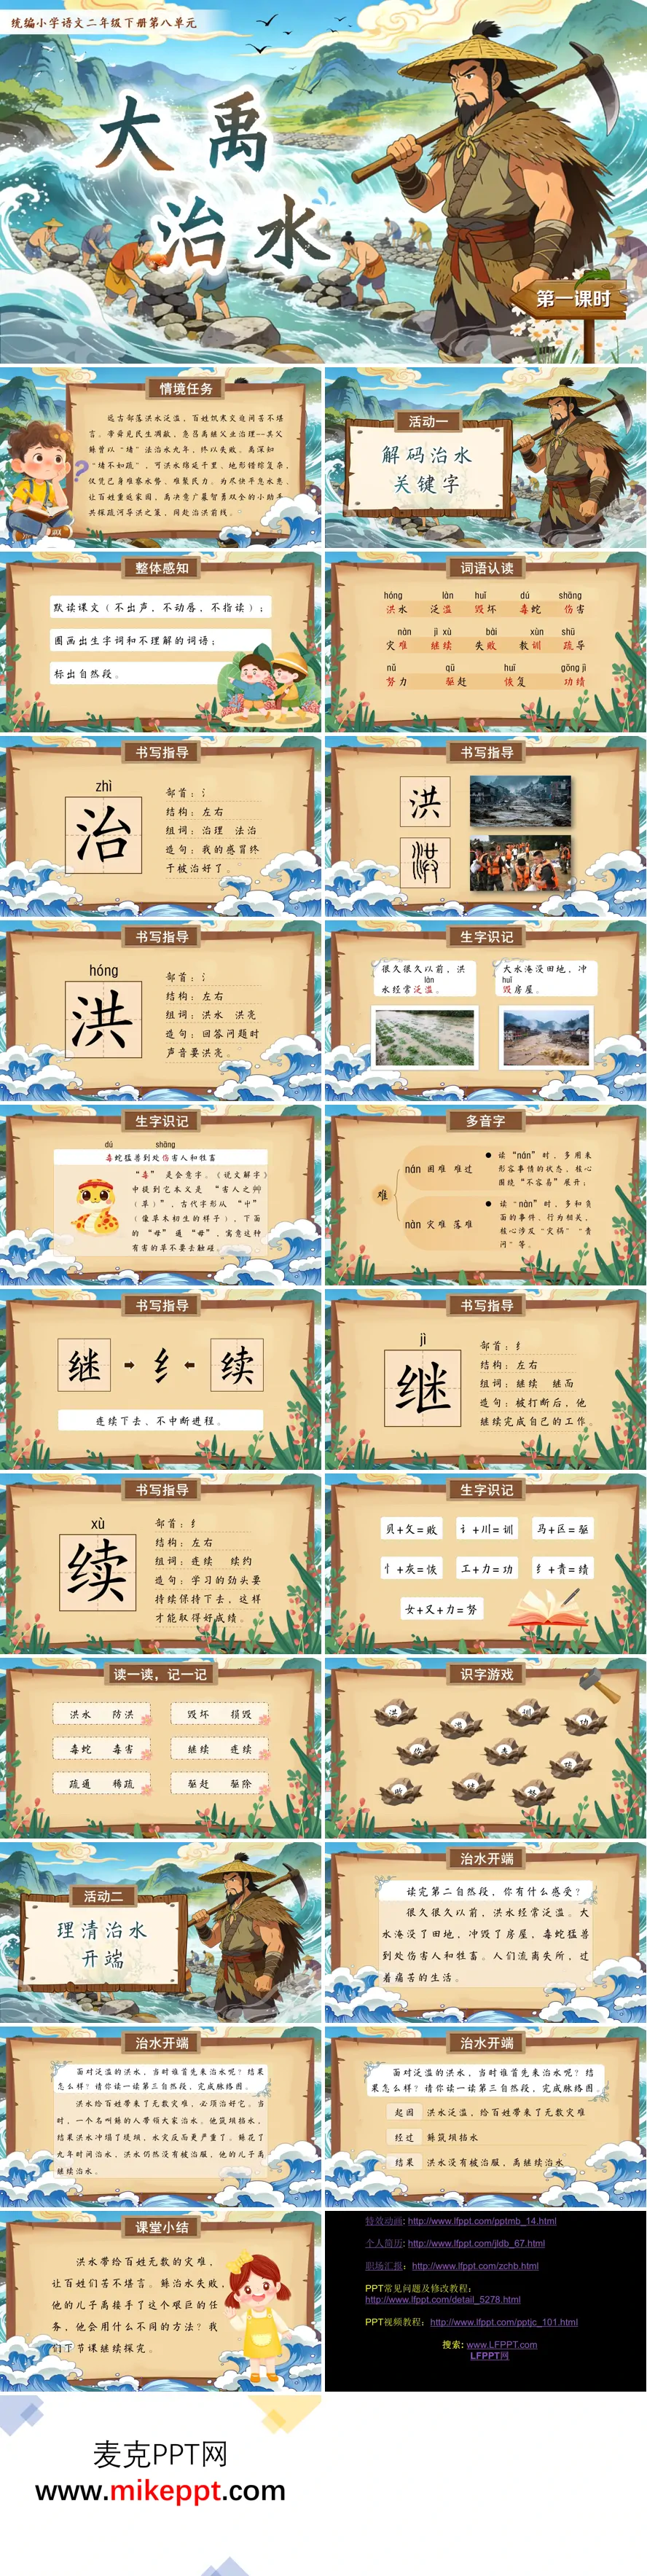 统编小学语文二年级下册第八单元
大禹
治水
第一课时
情境任务
远古部落洪水泛滥，百姓饥寒交迫间苦不堪
言。帝舜见民生凋敝，急召禹继父业治理——其父
鲧曾以“堵”法治水九年，终以失败。禹深知
“堵不如疏”，可洪水绵延千里、地形错综复杂，
仅凭己身难察水势、难聚民力。为尽快平息水患，
让百姓重返家园，禹决意广募智勇双全的小助手
共探疏河导洪之策，同赴治洪前线。
活动一
解码治水
关键字
整体感知
默读课文（不出声，不动唇，不指读）；
圈画出生字词和不理解的词语；
标出自然段。
词语认读
hóng làn huǐ dú shāng
洪水 泛滥 毁坏 毒蛇 伤害
nàn jì xù bài xùn shū
灾难 继续 失败 教训 疏导
nǔ qū huī gōng jì
努力 驱赶 恢复 功绩
书写指导
zhì
治
部首：氵
结构：左右
组词：治理 法治
造句：我的感冒终
于被治好了。
书写指导
洪
书写指导
hóng
洪
部首：氵
结构：左右
组词：洪水 洪亮
造句：回答问题时
声音要洪亮。
生字识记
很久很久以前，洪
làn
水经常泛滥。
大水淹没田地，冲
huǐ
毁房屋。
生字识记
dú shāng
毒蛇猛兽到处伤害人和牲畜
“毒” 是会意字。《说文解字》
中提到它本义是 “害人之艸
（草）”，古代字形从 “屮”
（像草木初生的样子），下面
的 “毋” 通 “毋”，寓意这种
有害的草不要去触碰。
多音字
难
nán 困难 难过
nàn 灾难 落难
读“nán”时，多用来
形容事情的状态，核心
围绕“不容易”展开；
读“nàn”时，多和负
面的事件、行为相关，
核心涉及“灾祸”“责
问”等。
书写指导
继 纟 续
连续下去、不中断进程。
书写指导
jì
继
部首：纟
结构：左右
组词：继续 继而
造句：被打断后，他
继续完成自己的工作。
书写指导
xù
续
部首：纟
结构：左右
组词：连续 续约
造句：学习的劲头要
持续保持下去，这样
才能取得好成绩。
生字识记
贝+攵=败 讠+川=训 马+区=驱
忄+灰=恢 工+力=功 纟+责=绩
女+又+力=努
读一读，记一记
洪水 防洪 毁坏 损毁
毒蛇 毒害 继续 连续
疏通 稀疏 驱赶 驱除
识字游戏
洪
训
功
伤
败
活动二
理清治水
开端
治水开端
读完第二自然段，你有什么感受？
很久很久以前，洪水经常泛滥。大
水淹没了田地，冲毁了房屋，毒蛇猛兽
到处伤害人和牲畜。人们流离失所，过
着痛苦的生活。
治水开端
面对泛滥的洪水，当时谁首先来治水呢？结果
怎么样？请你读一读第三自然段，完成脉络图。
洪水给百姓带来了无数灾难，必须治好它。当
时，一个名叫鲧的人带领大家治水。他筑坝挡水，
结果洪水冲塌了堤坝，水灾反而更严重了。鲧花了
九年时间治水，洪水仍然没有被治服，他的儿子禹
继续治水。
治水开端
面对泛滥的洪水，当时谁首先来治水呢？结
果怎么样？请你读一读第三自然段，完成脉络图。
起因 洪水泛滥，给百姓带来了无数灾难
经过 鲧筑坝挡水
结果 洪水没有被治服，禹继续治水
课堂小结
洪水带给百姓无数的灾难，
让百姓们苦不堪言。鲧治水失败，
他的儿子禹接手了这个艰巨的任
务，他会用什么不同的方法？我
们下节课继续探究。
特效动画: http://www.lfppt.com/pptmb_14.html
个人简历: http://www.lfppt.com/jldb_67.html
职场汇报: http://www.lfppt.com/zchb.html
PPT常见问题及修改教程:
http://www.lfppt.com/detail_5278.html
PPT视频教程: http://www.lfppt.com/pptjc_101.html
搜索: www.LFPPT.com
LFPPT网
麦克PPT网
www.mikeppt.com